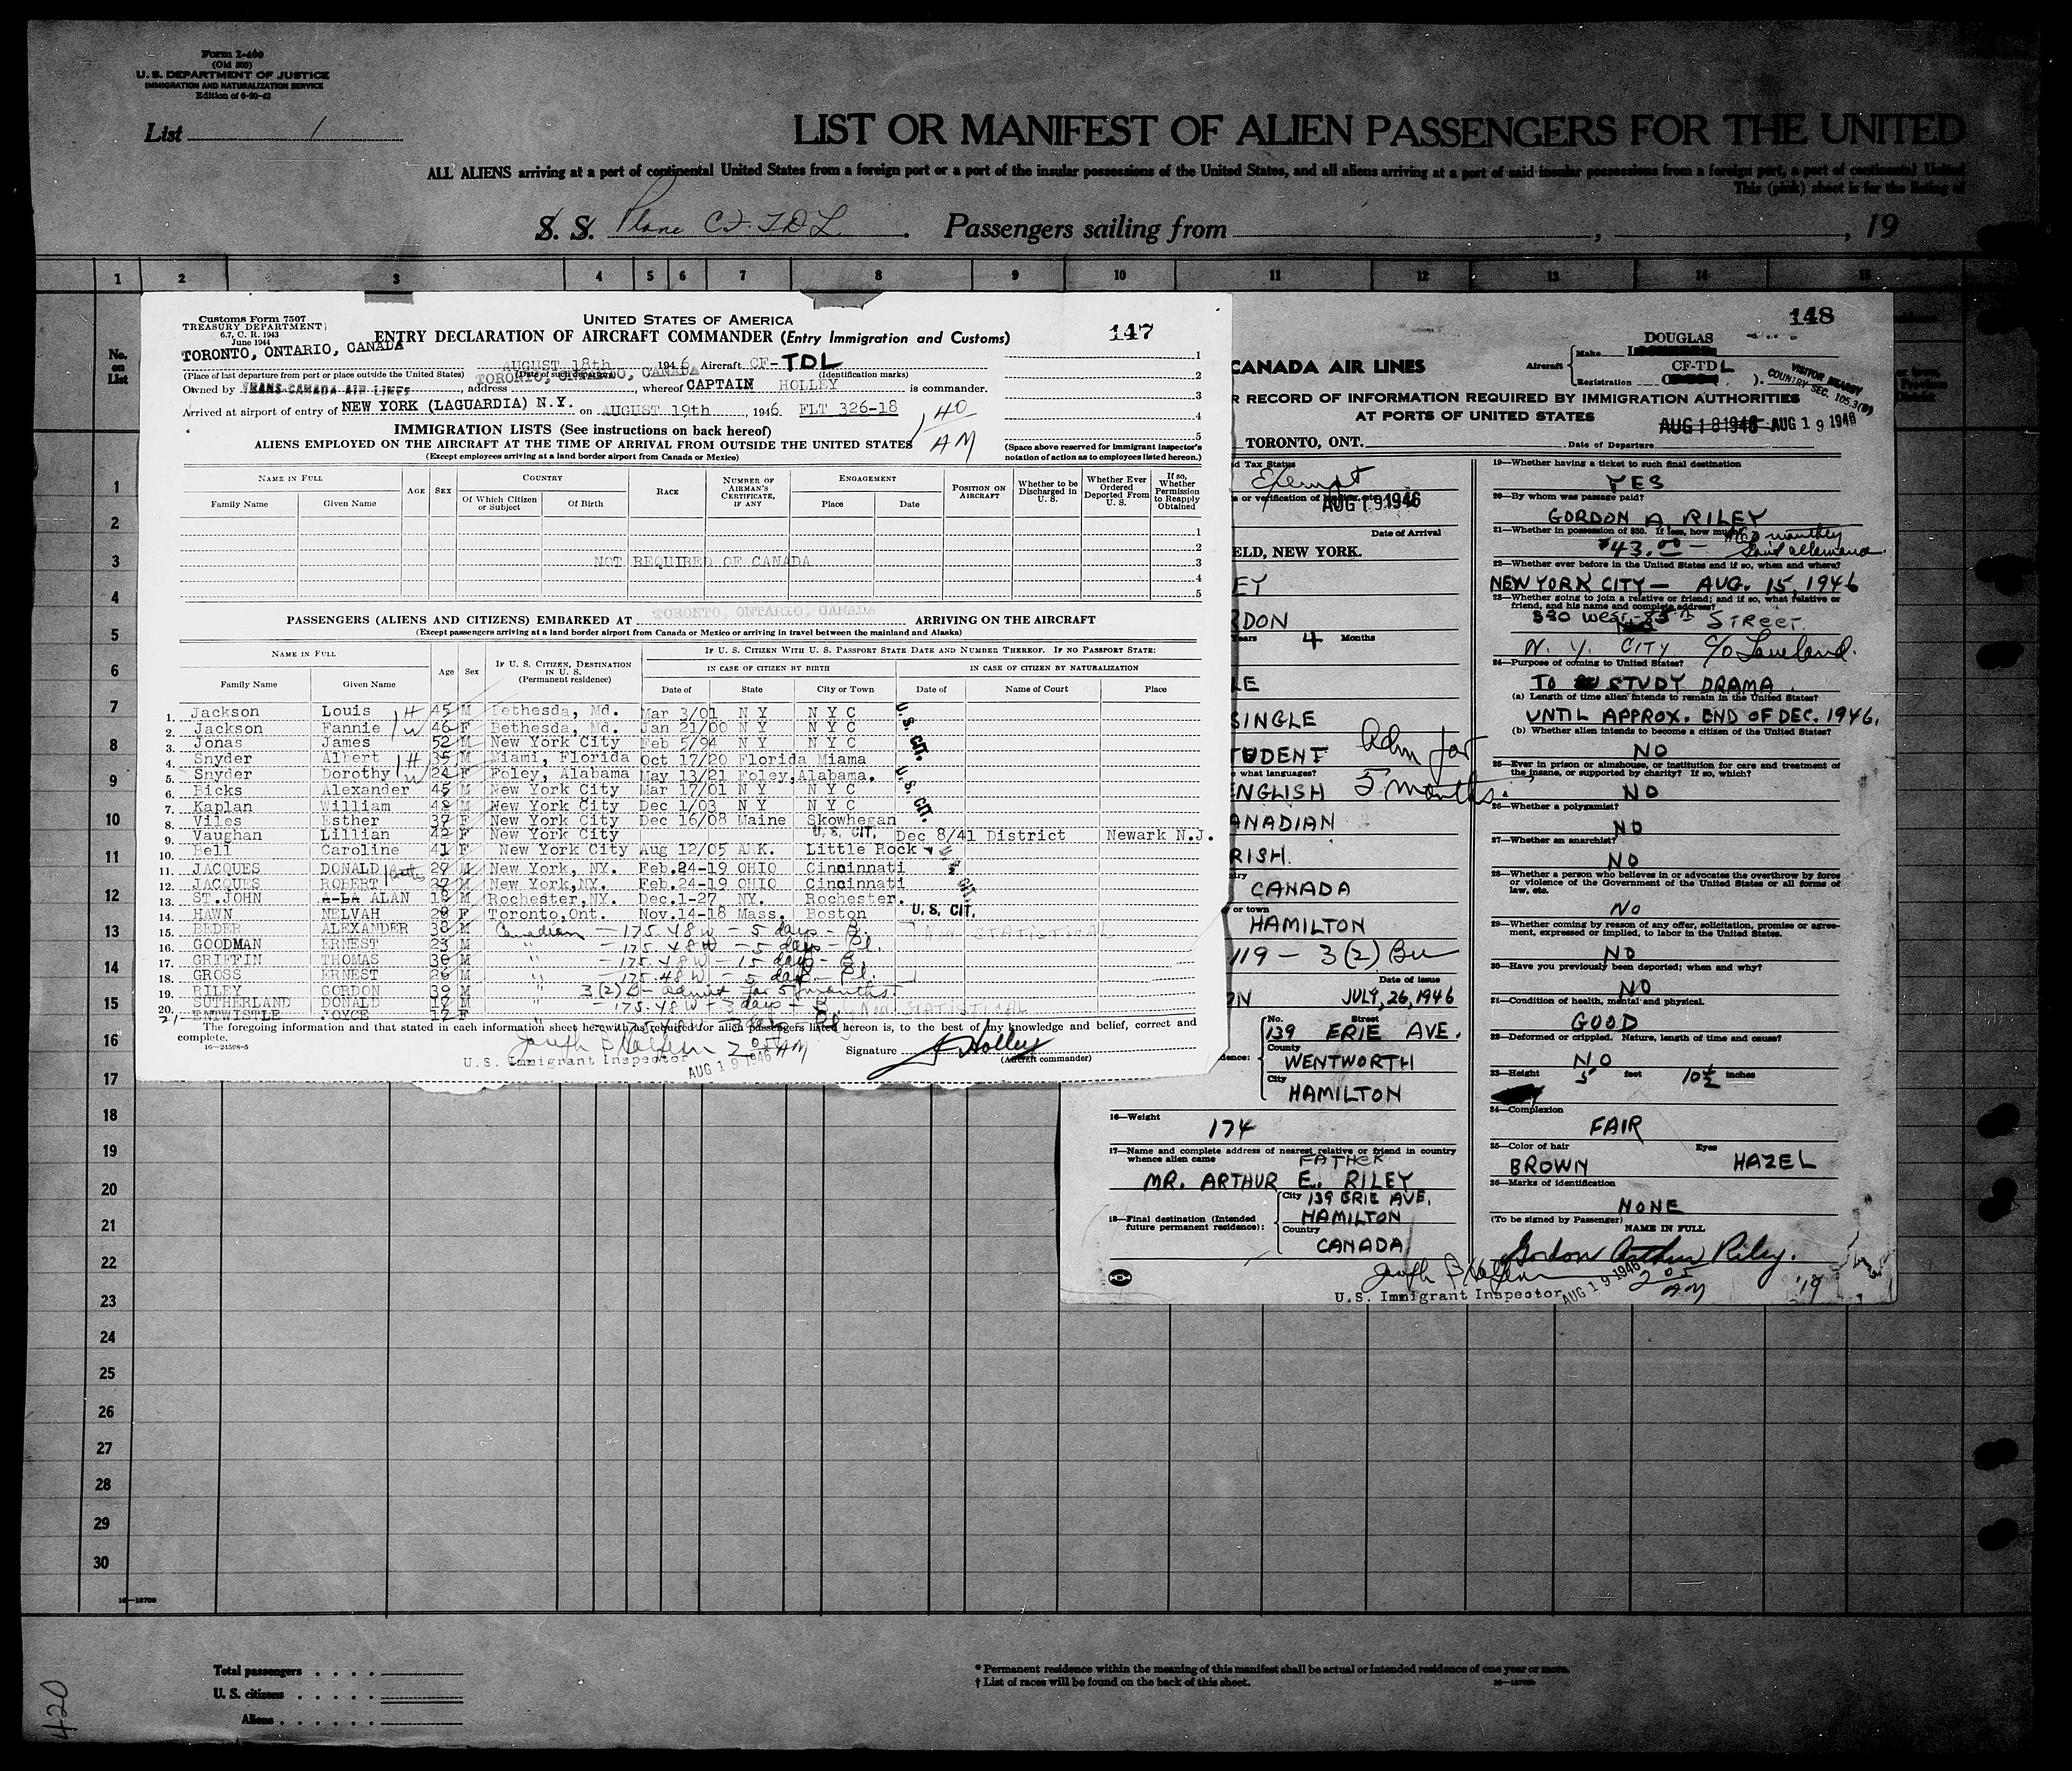 Form I-400
(Old 500)
U. S. DEPARTMENT OF JUSTICE
IMMIGRATION AND NATURALIZATION SERVICE
Edition of 6-20-42
List 1
LIST OR MANIFEST OF ALIEN PASSENGERS FOR THE UNITED
ALL ALIENS arriving at a port of continental United States from a foreign port or a port of the insular possessions of the United States, and all aliens arriving at a port of said insular possessions from a foreign port, a port of continental United
This (pink) sheet is for the listing of
S. S. Plane CF-TDL. Passengers sailing from , , 19
1 2 3 4 5 6 7 8 9 10 11 12 13 14 15
No. on List
1
2
3
4
5
6
7
8
9
10
11
12
13
14
15
16
17
18
19
20
21
22
23
24
25
26
27
28
29
30
Customs Form 7507
TREASURY DEPARTMENT
6.7, C. R. 1943
June 1944
UNITED STATES OF AMERICA
ENTRY DECLARATION OF AIRCRAFT COMMANDER (Entry Immigration and Customs)
147
TORONTO, ONTARIO, CANADA AUGUST 18th 1946 Aircraft CF-TDL
(Place of last departure from port or place outside the United States) (Date of such departure) (Identification marks)
Owned by TRANS-CANADA AIR LINES, address TORONTO, ONTARIO, CANADA, whereof CAPTAIN HOLLEY is commander.
Arrived at airport of entry of NEW YORK (LAGUARDIA) N.Y. on AUGUST 19th, 1946 FLT 326-18
1 40
AM
1
2
3
4
5
(Space above reserved for immigrant inspector's notation of action as to employees listed hereon.)
IMMIGRATION LISTS (See instructions on back hereof)
ALIENS EMPLOYED ON THE AIRCRAFT AT THE TIME OF ARRIVAL FROM OUTSIDE THE UNITED STATES
(Except employees arriving at a land border airport from Canada or Mexico)
NAME IN FULL AGE SEX COUNTRY RACE NUMBER OF AIRMAN'S CERTIFICATE, IF ANY ENGAGEMENT POSITION ON AIRCRAFT Whether to be Discharged in U. S. Whether Ever Ordered Deported From U. S. If so, Whether Permission to Reapply Obtained
Family Name Given Name Of Which Citizen or Subject Of Birth Place Date
1
2
NOT REQUIRED OF CANADA 3
4
5
PASSENGERS (ALIENS AND CITIZENS) EMBARKED AT TORONTO, ONTARIO, CANADA ARRIVING ON THE AIRCRAFT
(Except passengers arriving at a land border airport from Canada or Mexico or arriving in travel between the mainland and Alaska)
NAME IN FULL Age Sex IF U. S. CITIZEN, DESTINATION IN U. S. (Permanent residence) IF U. S. CITIZEN WITH U. S. PASSPORT STATE DATE AND NUMBER THEREOF. IF NO PASSPORT STATE:
IN CASE OF CITIZEN BY BIRTH IN CASE OF CITIZEN BY NATURALIZATION
Family Name Given Name Date of State City or Town Date of Name of Court Place
1. Jackson Louis H 45 M Bethesda, Md. Mar 3/01 N Y N Y C
2. Jackson Fannie W 46 F Bethesda, Md. Jan 21/00 N Y N Y C
3. Jonas James 52 M New York City Feb 5/94 N Y N Y C
4. Snyder Albert H 35 M Miami, Florida Oct 17/20 Florida Miama
5. Snyder Dorothy W 24 F Foley, Alabama May 13/21 Foley, Alabama.
6. Bicks Alexander 45 M New York City Mar 17/01 N Y N Y C
7. Kaplan William 42 M New York City Dec 1/03 N Y N Y C
8. Viles Esther 37 F New York City Dec 16/08 Maine Skowhegan
9. Vaughan Lillian 42 F New York City U. S. CIT. Dec 8/41 District Newark N.J.
10. Bell Caroline 41 F New York City Aug 12/05 ARK. Little Rock
11. JACQUES DONALD 27 M New York, NY. Feb.24-19 OHIO Cincinnati
12. JACQUES ROBERT 27 M New York,NY. Feb.24-19 OHIO Cincinnati
13. ST.JOHN A-LA ALAN 18 M Rochester,NY. Dec.1-27 NY. Rochester.
14. HAWN NELVAH 28 F Toronto,Ont. Nov.14-18 Mass. Boston U. S. CIT.
15. BEDER ALEXANDER 38 M Canadian - 175.48W - 5 days - B. NON STATISTICAL
16. GOODMAN ERNEST 23 M " - 175.48W - 5 days - Pl.
17. GRIFFIN THOMAS 30 M " - 175.48W - 15 days - B.
18. GROSS ERNEST 26 M " - 175.48W - 5 days - Pl.
19. RILEY GORDON 39 M 3(2) B - admit for 5 months
20. SUTHERLAND DONALD 17 M - 175.48W - 3 days - B. NON STATISTICAL
21 ENTWISTLE JOYCE 17 F
U. S. CIT.
U. S. CIT.
U. S. CIT.
The foregoing information and that stated in each information sheet herewith as required for alien passengers listed hereon is, to the best of my knowledge and belief, correct and complete.
16-24598-5
U.S. Immigrant Inspector AUG 19 1946 2 05 AM
Signature Holley
(Aircraft commander)
148
CANADA AIR LINES
Aircraft { Make DOUGLAS
Registration CF-TDL ).
VISITOR NEARBY
COUNTRY SEC. 105.3(B)
R RECORD OF INFORMATION REQUIRED BY IMMIGRATION AUTHORITIES
AT PORTS OF UNITED STATES
AUG 18 1946 AUG 19 1946
TORONTO, ONT. Date of Departure
d Tax Status
Exempt
AUG 19 1946
Date of Arrival
ELD, NEW YORK.
EY
RDON
ears 4 Months
LE
SINGLE
TUDENT Adm for
what languages?
ENGLISH 5 months.
ANADIAN
RISH.
CANADA
or town
HAMILTON
119 - 3(2) Bu
Date of issue
ON JULY, 26, 1946
No. Street
139 ERIE AVE.
County
dence: WENTWORTH
City
HAMILTON
16—Weight
174
17—Name and complete address of nearest relative or friend in country whence alien came
FATHER
MR. ARTHUR E. RILEY
City 139 ERIE AVE.
18—Final destination (Intended future permanent residence): HAMILTON
Country
CANADA
19—Whether having a ticket to such final destination
YES
20—By whom was passage paid?
GORDON A RILEY
21—Whether in possession of $50. If less, how much?
$43.00 — monthly
22—Whether ever before in the United States and if so, when and where?
NEW YORK CITY — AUG. 15, 1946
23—Whether going to join a relative or friend; and if so, what relative or friend, and his name and complete address?
330 WEST 85th STREET.
N. Y. CITY c/o Loveland.
24—Purpose of coming to United States?
TO STUDY DRAMA
(a) Length of time alien intends to remain in the United States?
UNTIL APPROX. END OF DEC. 1946.
(b) Whether alien intends to become a citizen of the United States?
NO
25—Ever in prison or almshouse, or institution for care and treatment of the insane, or supported by charity? If so, which?
NO
26—Whether a polygamist?
NO
27—Whether an anarchist?
NO
28—Whether a person who believes in or advocates the overthrow by force or violence of the Government of the United States or all forms of law, etc.
NO
29—Whether coming by reason of any offer, solicitation, promise or agreement, expressed or implied, to labor in the United States.
NO
30—Have you previously been deported; when and why?
NO
31—Condition of health, mental and physical.
GOOD
32—Deformed or crippled. Nature, length of time and cause?
NO
33—Height 5 feet 10½ inches
34—Complexion
FAIR
35—Color of hair Eyes
BROWN HAZEL
36—Marks of identification
NONE
(To be signed by Passenger) NAME IN FULL
Gordon Arthur Riley.
U.S. Immigrant Inspector AUG 19 1946 2 05 AM
'19
16—18709
Total passengers
U. S. citizens
Aliens
* Permanent residence within the meaning of this manifest shall be actual or intended residence of one year or more.
† List of races will be found on the back of this sheet.
420